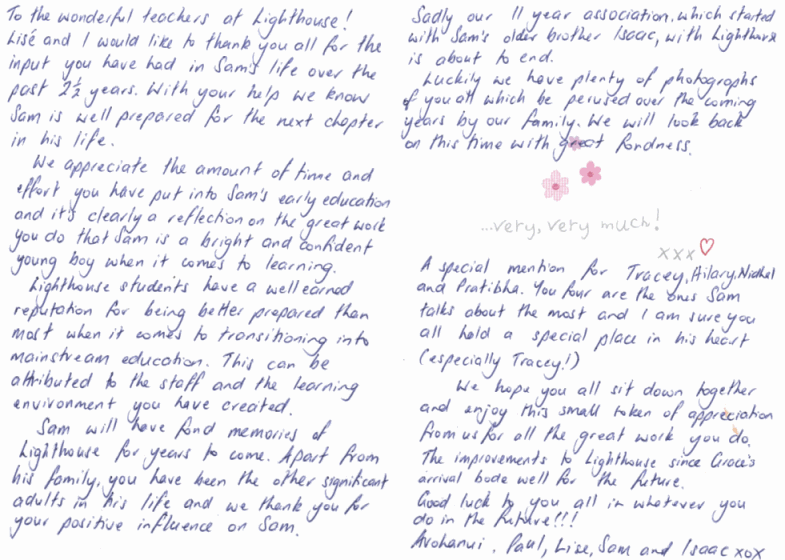 To the wonderful teachers at Lighthouse!
Lisé and I would like to thank you all for the
input you have had in Sam's life over the
past 2½ years. With your help we know
Sam is well prepared for the next chapter
in his life.
We appreciate the amount of time and
effort you have put into Sam's early education
and it's clearly a reflection on the great work
you do that Sam is a bright and confident
young boy when it comes to learning.
Lighthouse students have a well earned
reputation for being better prepared than
most when it comes to transitioning into
mainstream education. This can be
attributed to the staff and the learning
environment you have created.
Sam will have fond memories of
Lighthouse for years to come. Apart from
his family, you have been the other significant
adults in his life and we thank you for
your positive influence on Sam.
Sadly our 11 year association, which started
with Sam's older brother Isaac, with Lighthouse
is about to end.
Luckily we have plenty of photographs
of you all which be perused over the coming
years by our family. We will look back
on this time with great fondness.
...very, very much!
xxx
A special mention for Tracey, Hilary, Nidhal
and Pratibha. You four are the ones Sam
talks about the most and I am sure you
all hold a special place in his heart
(especially Tracey!)
We hope you all sit down together
and enjoy this small token of appreciation
from us for all the great work you do.
The improvements to Lighthouse since Grace's
arrival bode well for the future.
Good luck to you all in whatever you
do in the future!!!
Arohanui, Paul, Lise, Sam and Isaac xox